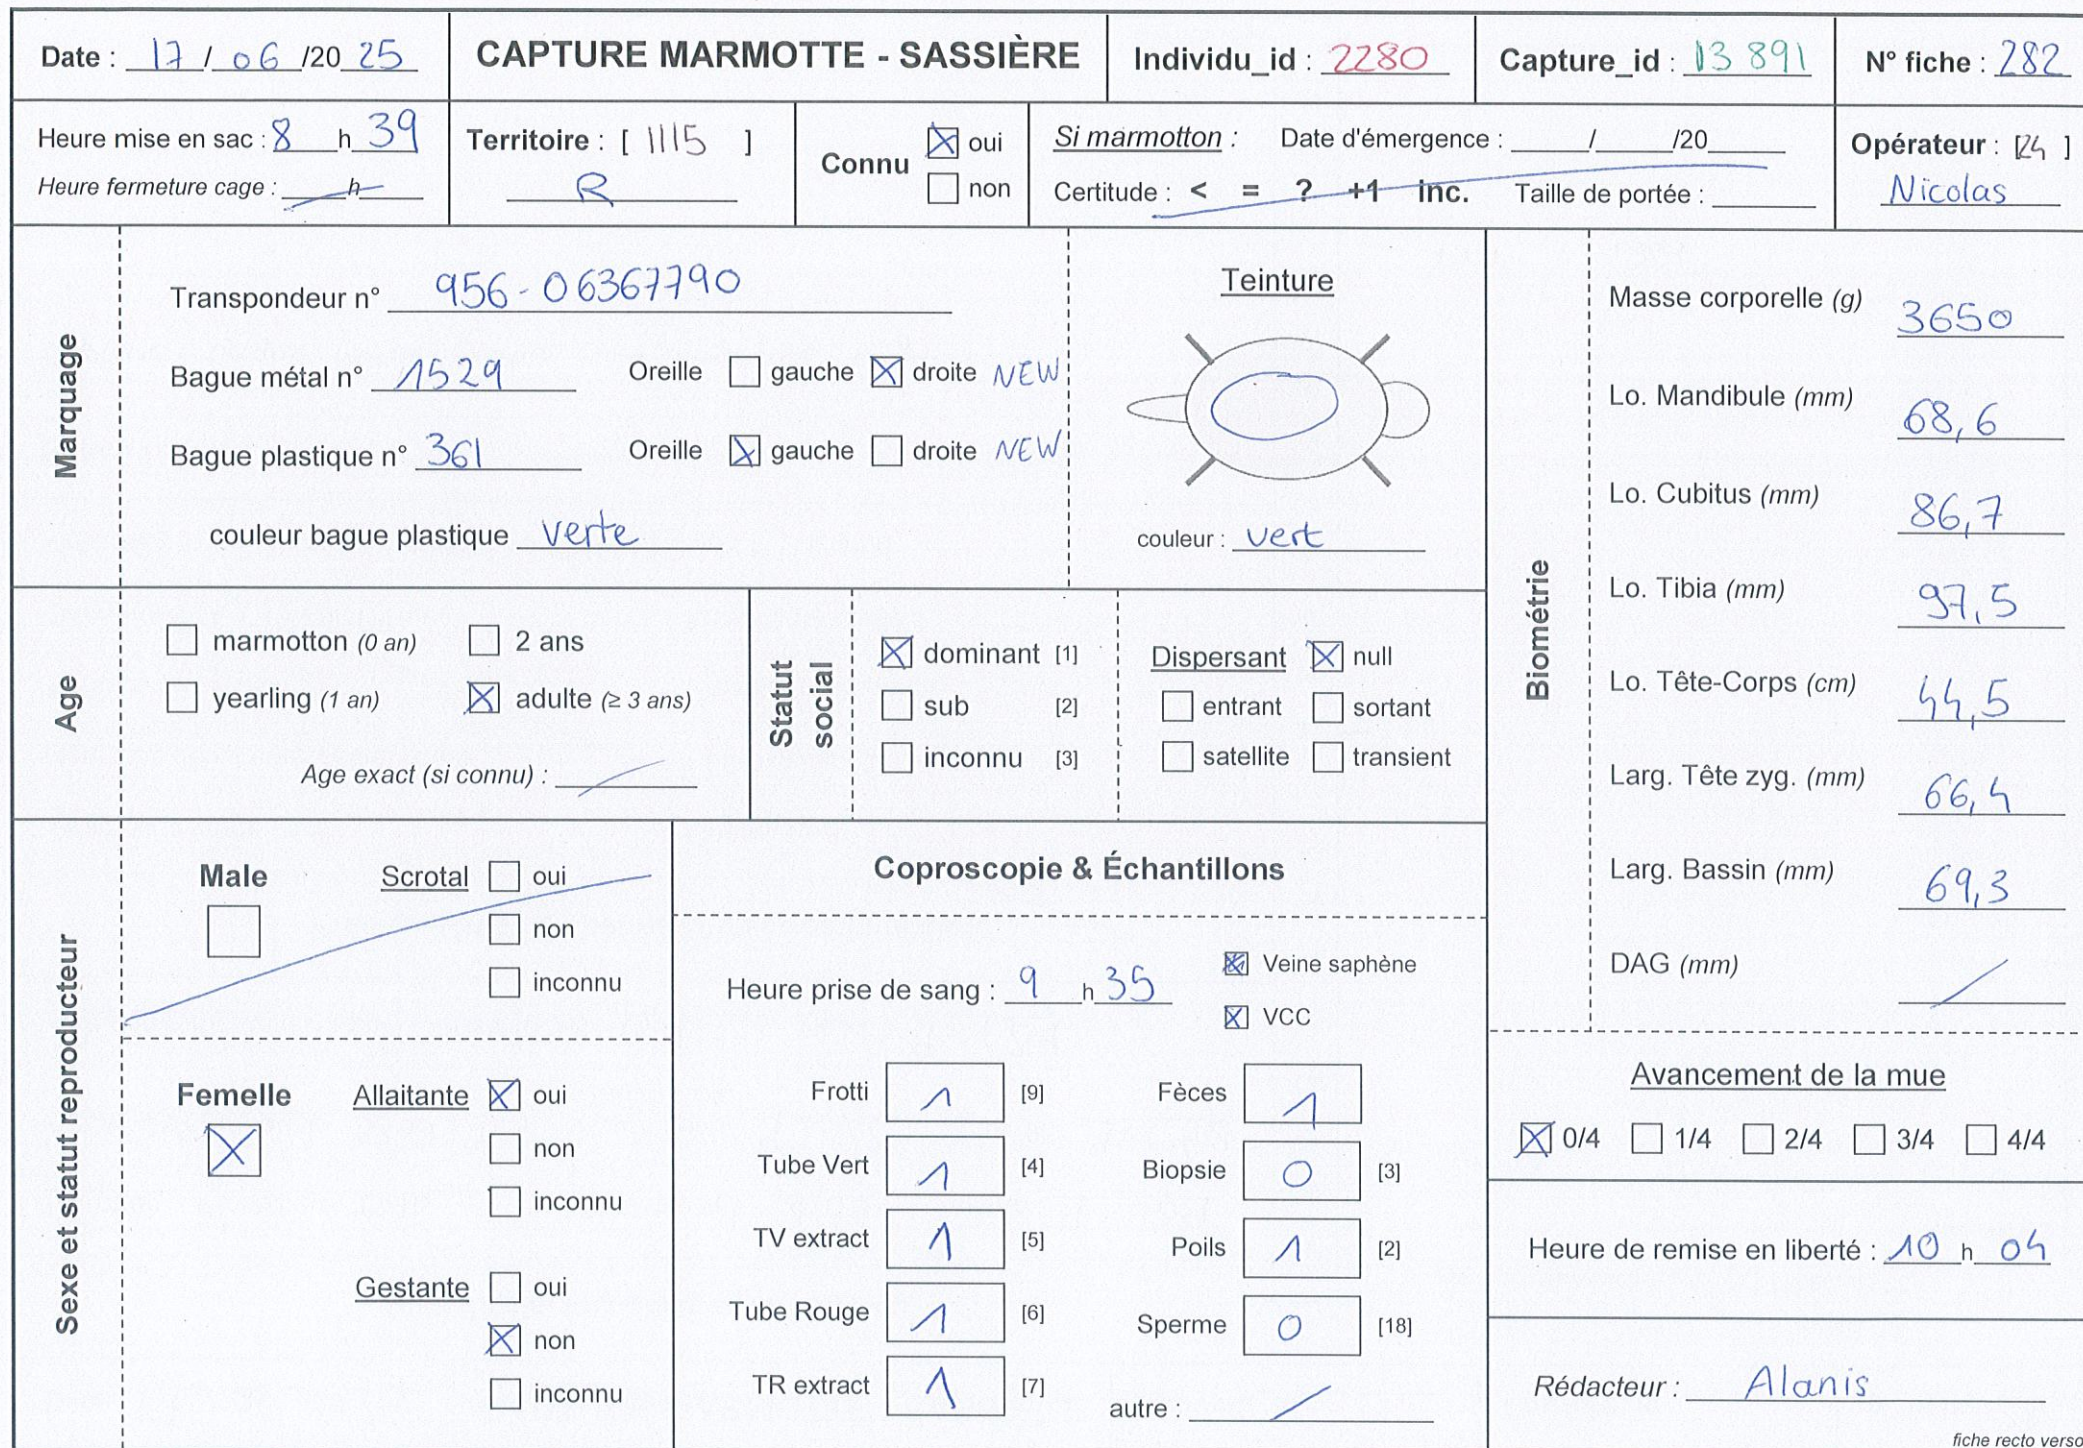 Date : 17 / 06 /20 25
CAPTURE MARMOTTE - SASSIÈRE
Individu_id : 2280
Capture_id : 13 891
N° fiche : 282
Heure mise en sac : 8 h 39
Heure fermeture cage : h
Territoire : [ 1115 ]
R
Connu
oui
non
Si marmotton : Date d'émergence : / /20
Certitude : < = ? +1 inc. Taille de portée :
Opérateur : [24 ]
Nicolas
Marquage
Transpondeur n° 956-06367790
Bague métal n° 1529 Oreille gauche droite NEW
Bague plastique n° 361 Oreille gauche droite NEW
couleur bague plastique verte
Teinture
couleur : vert
Age
marmotton (0 an) 2 ans
yearling (1 an) adulte (≥ 3 ans)
Age exact (si connu) :
Statut social
dominant [1]
sub [2]
inconnu [3]
Dispersant null
entrant sortant
satellite transient
Biométrie
Masse corporelle (g) 3650
Lo. Mandibule (mm) 68,6
Lo. Cubitus (mm) 86,7
Lo. Tibia (mm) 97,5
Lo. Tête-Corps (cm) 44,5
Larg. Tête zyg. (mm) 66,4
Larg. Bassin (mm) 69,3
DAG (mm)
Sexe et statut reproducteur
Male
Scrotal oui
non
inconnu
Femelle
Allaitante oui
non
inconnu
Gestante oui
non
inconnu
Coproscopie & Échantillons
Heure prise de sang : 9 h 35
Veine saphène
VCC
Frotti 1 [9]
Tube Vert 1 [4]
TV extract 1 [5]
Tube Rouge 1 [6]
TR extract 1 [7]
Fèces 1
Biopsie 0 [3]
Poils 1 [2]
Sperme 0 [18]
autre :
Avancement de la mue
0/4 1/4 2/4 3/4 4/4
Heure de remise en liberté : 10 h 04
Rédacteur : Alanis
fiche recto verso